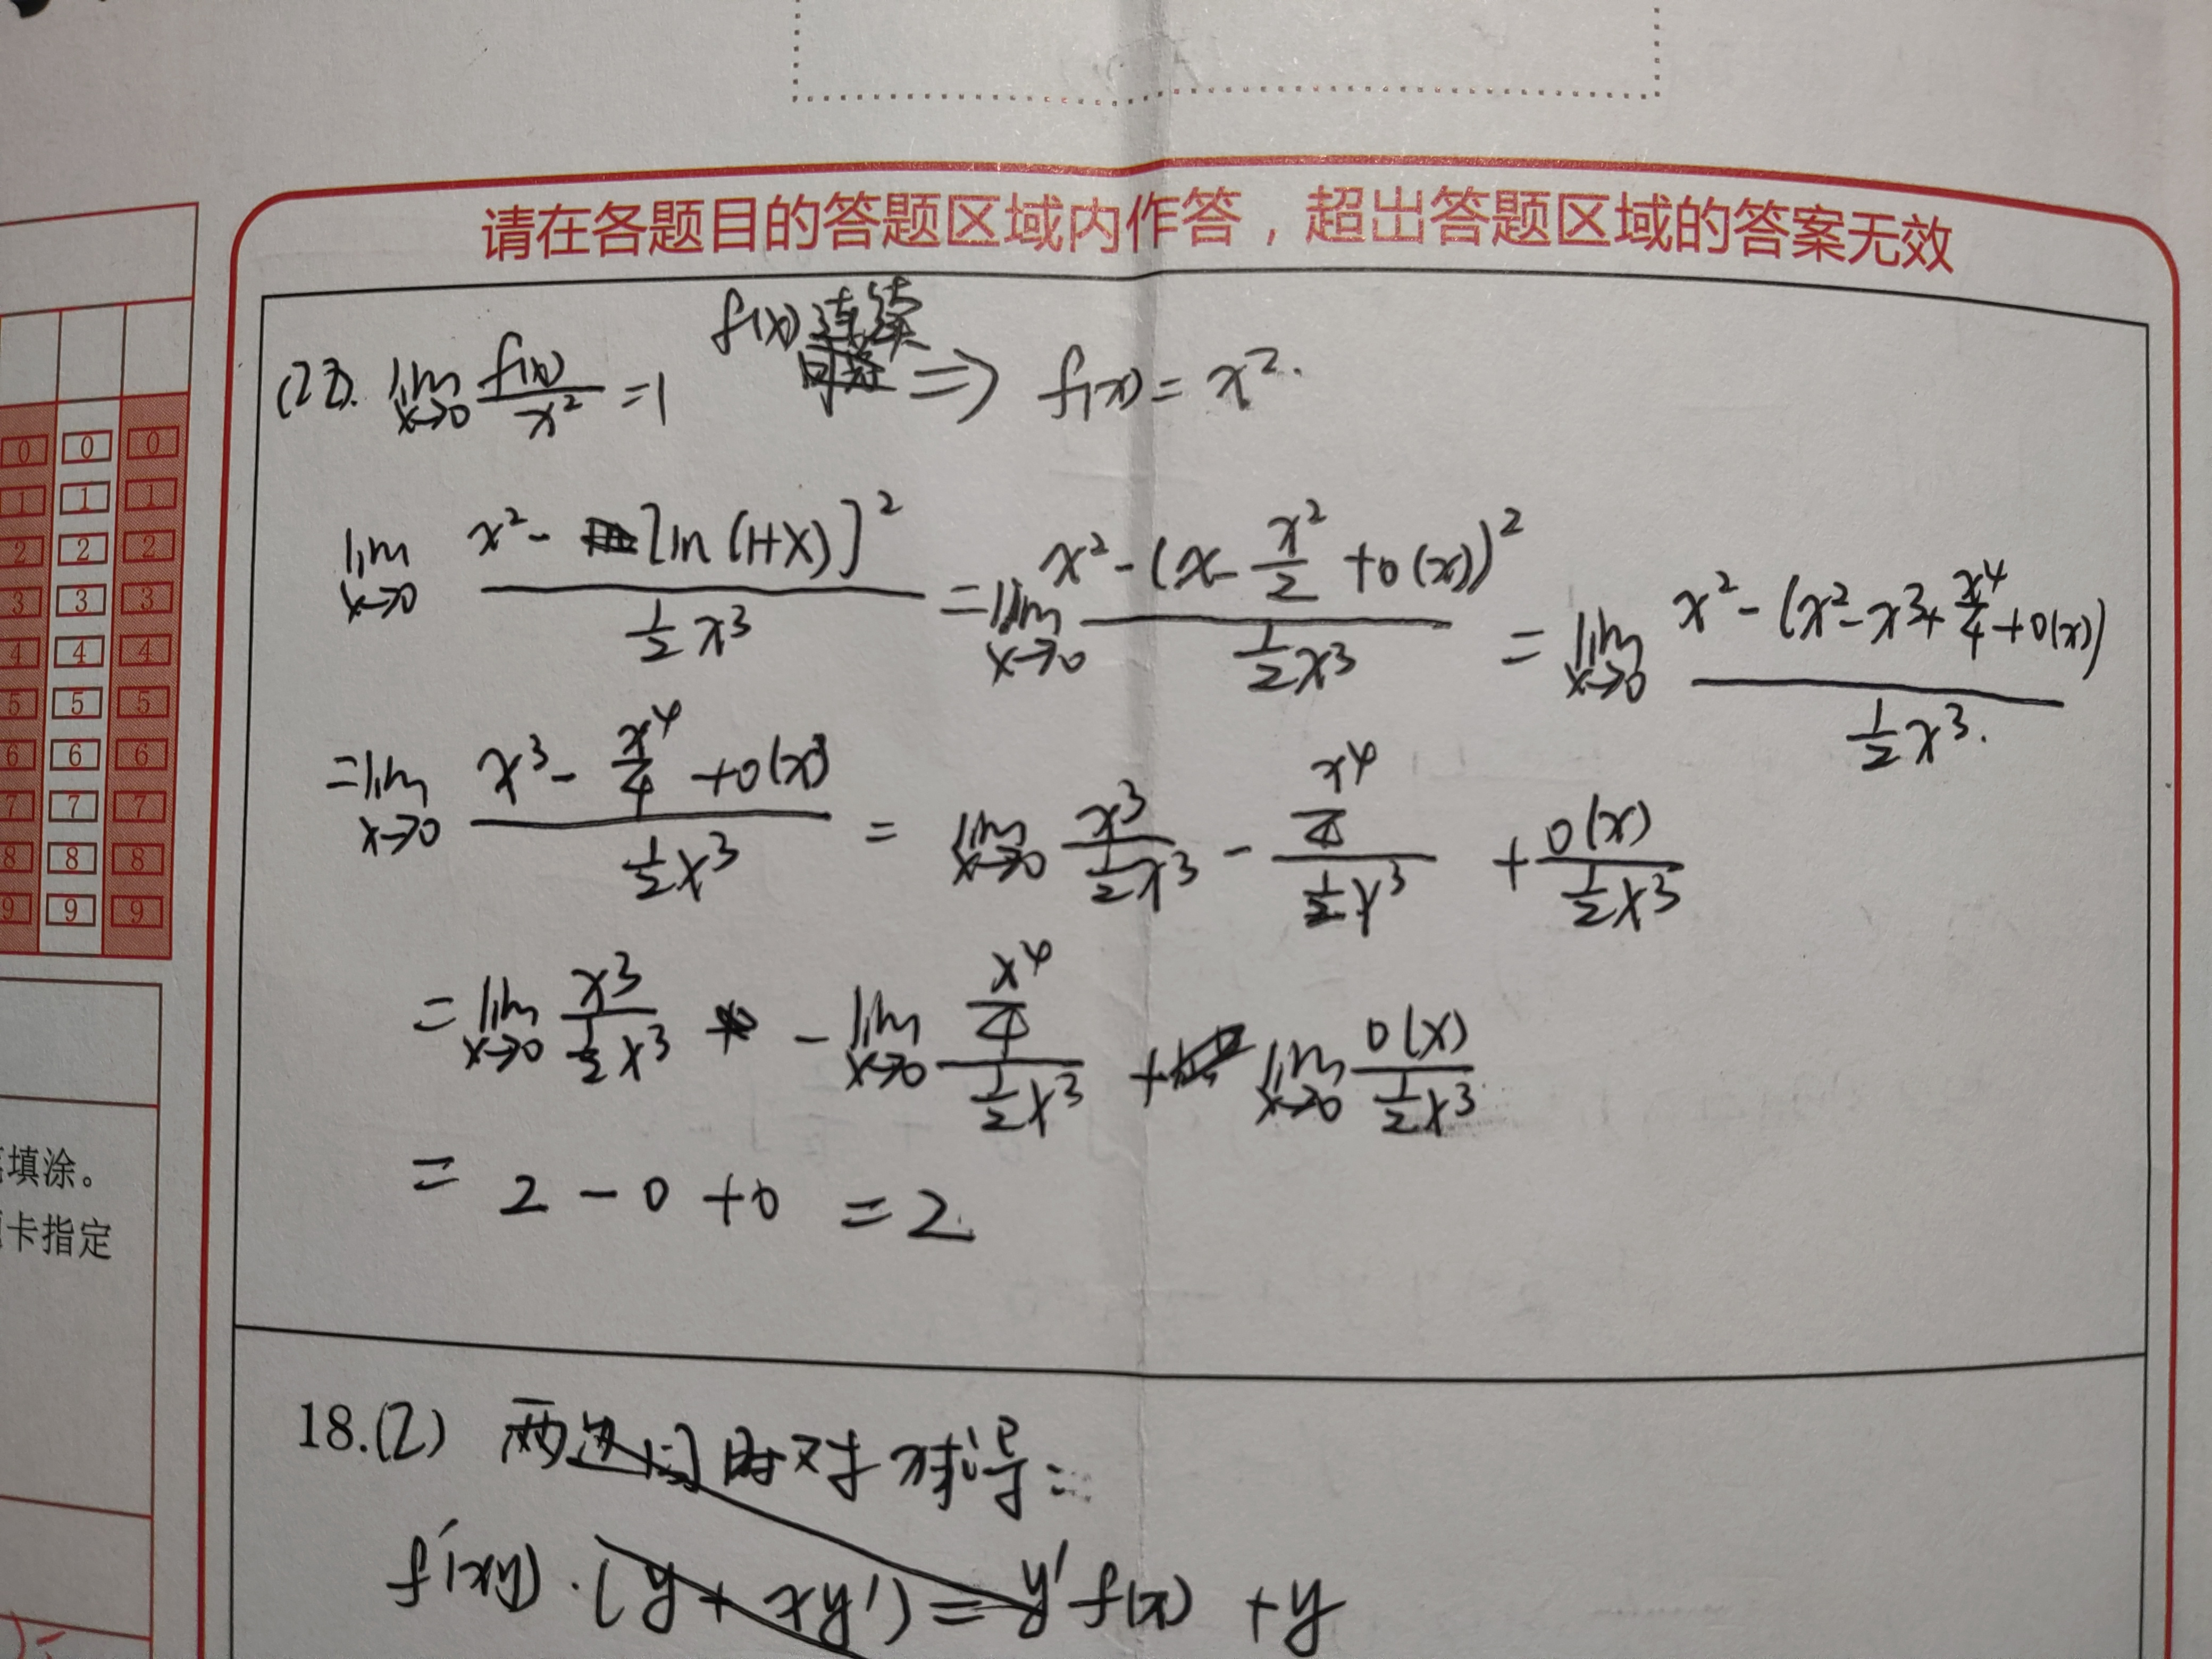 请在各题目的答题区域内作答，超出答题区域的答案无效
f(x) 连续
(22). lim x→0 f(x)/x² = 1 ⇒ f(x) = x².
lim x→0 (x² - [ln(1+x)]²)/(½x³) = lim x→0 (x² - (x - x²/2 + o(x))²)/(½x³) = lim x→0 (x² - (x² - x³ + x⁴/4 + o(x)))/(½x³).
= lim x→0 (x³ - x⁴/4 + o(x³))/(½x³) = lim x→0 x³/(½x³) - (x⁴/4)/(½x³) + o(x)/(½x³)
= lim x→0 x³/(½x³) - lim x→0 (x⁴/4)/(½x³) + lim x→0 o(x)/(½x³)
= 2 - 0 + 0 = 2.
18.(2) 两边同时对x求导:
f'(xy)·(y + xy') = y'f(x) + y
0 0 0
1 1 1
2 2 2
3 3 3
4 4 4
5 5 5
6 6 6
7 7 7
8 8 8
9 9 9
填涂。
卡指定